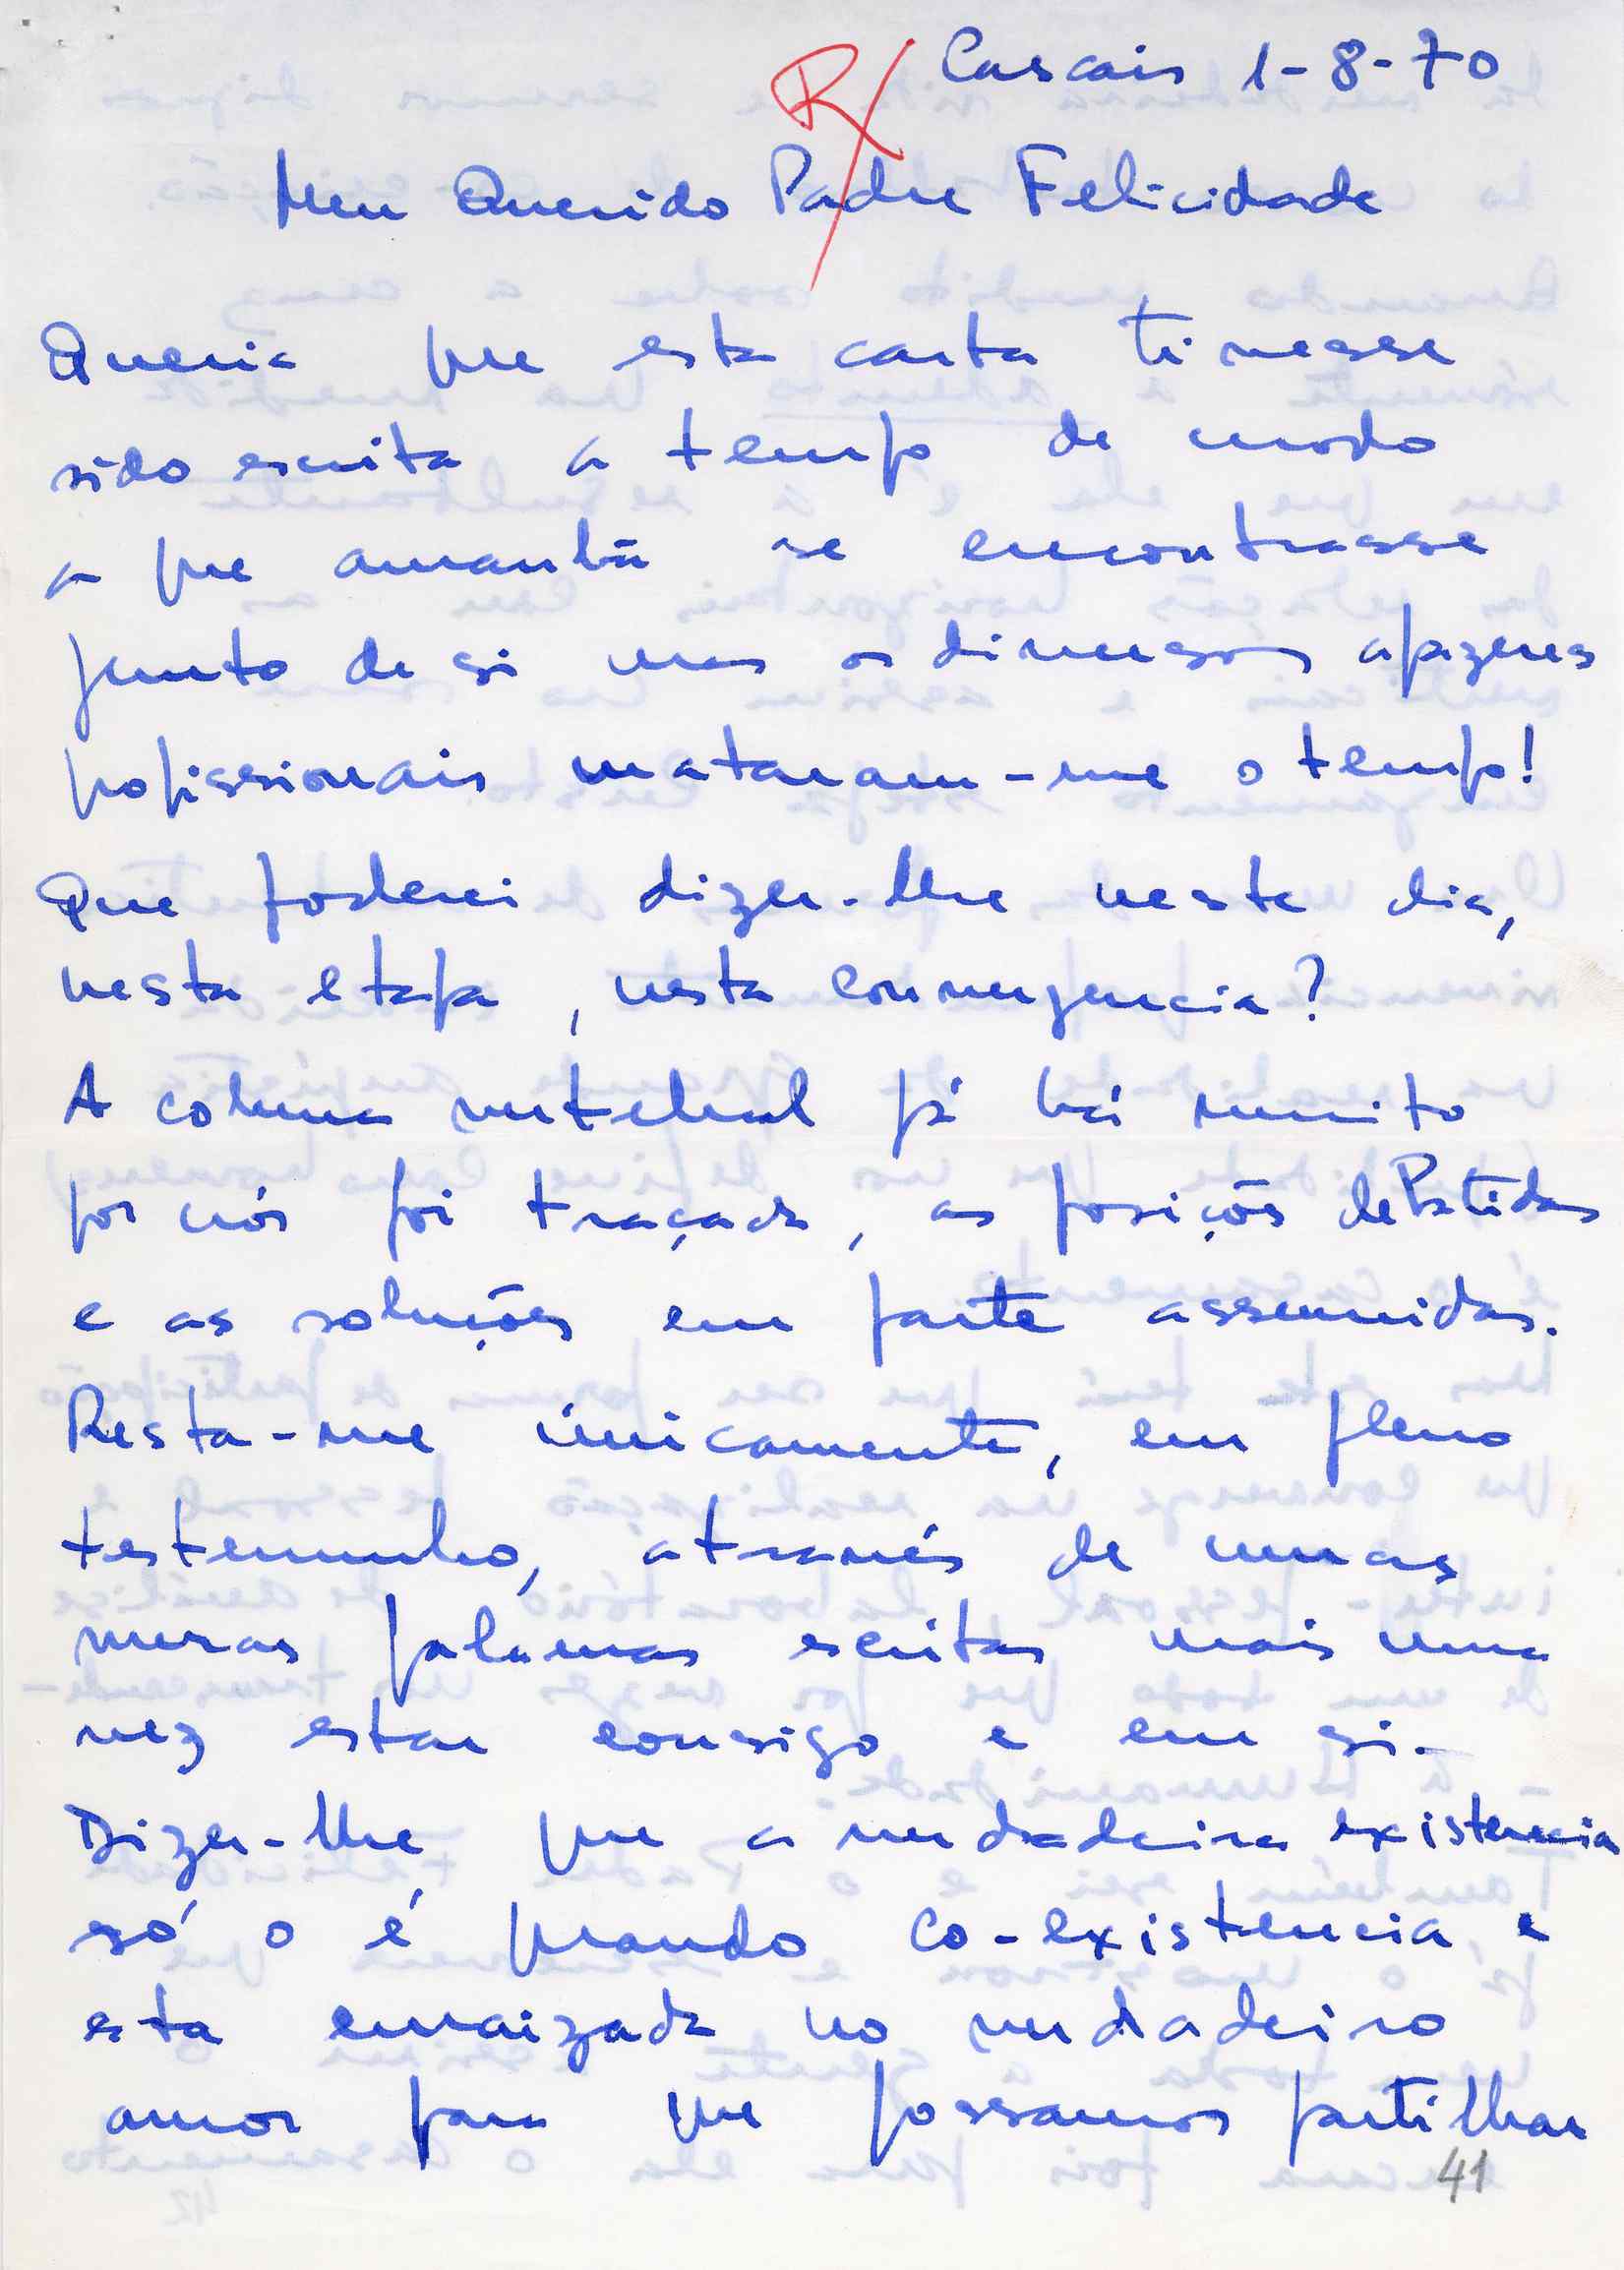 R
Cascais 1-8-70
Meu Querido Padre Felicidade
Queria que esta carta tivesse
sido escrita a tempo de modo
a que amanhã se encontrasse
junto de si mas os diversos afazeres
profissionais mataram-me o tempo!
Que poderei dizer-lhe neste dia,
nesta etapa, nesta convergencia?
A coluna vertebral já há muito
por nós foi traçada, as posições de Partida
e as soluções em parte assumidas.
Resta-me únicamente, em pleno
testemunho, através de umas
meras palavras escritas mais uma
vez estar consigo e em si.
Dizer-lhe que a verdadeira existencia
só o é quando co-existencia e
esta enraizada no verdadeiro
amor para que possamos partilhar
41